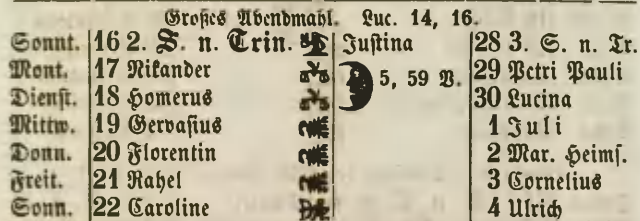 Großes Abendmahl. Luc. 14, 16.
Sonnt. 16 2. S. n. Trin. Justina 28 3. S. n. Tr.
Mont. 17 Nikander 5, 59 V. 29 Petri Pauli
Dienst. 18 Homerus 30 Lucina
Mittw. 19 Gervasius 1 Juli
Donn. 20 Florentin 2 Mar. Heims.
Freit. 21 Rahel 3 Cornelius
Sonn. 22 Caroline 4 Ulrich